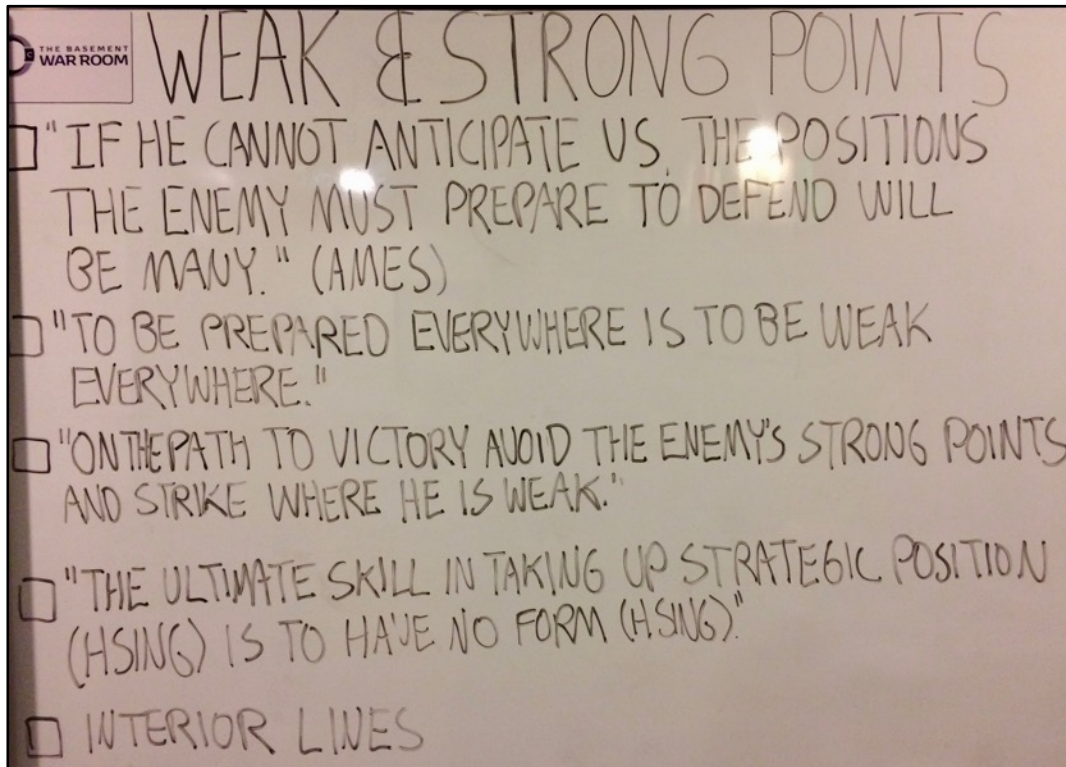 THE BASEMENT
WAR ROOM
WEAK & STRONG POINTS
"IF HE CANNOT ANTICIPATE US, THE POSITIONS
THE ENEMY MUST PREPARE TO DEFEND WILL
BE MANY." (AMES)
"TO BE PREPARED EVERYWHERE IS TO BE WEAK
EVERYWHERE."
"ON THE PATH TO VICTORY AVOID THE ENEMY'S STRONG POINTS
AND STRIKE WHERE HE IS WEAK."
"THE ULTIMATE SKILL IN TAKING UP STRATEGIC POSITION
(HSING) IS TO HAVE NO FORM (HSING)."
INTERIOR LINES